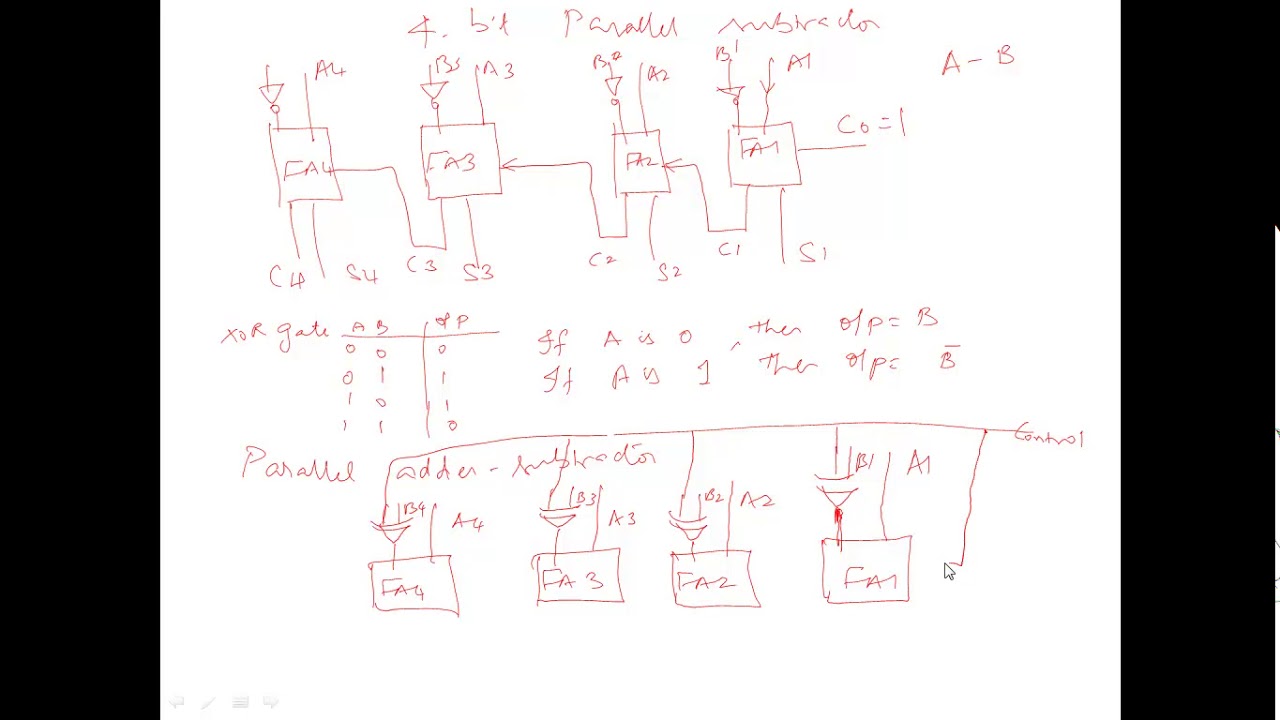 4. bit Parallel subtractor
A4 B3 A3 B2 A2 B1 A1 A - B
C0 = 1
FA4 FA3 FA2 FA1
C4 S4 C3 S3 C2 S2 C1 S1
XOR gate A B O/P If A is 0, then o/p = B
0 0 0
0 1 1 If A is 1 then o/p = B̅
1 0 1
1 1 0
Control
Parallel adder - subtractor
B4 A4 B3 A3 B2 A2 B1 A1
FA4 FA3 FA2 FA1